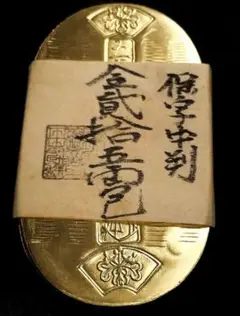 保字中判
金貳拾五両包